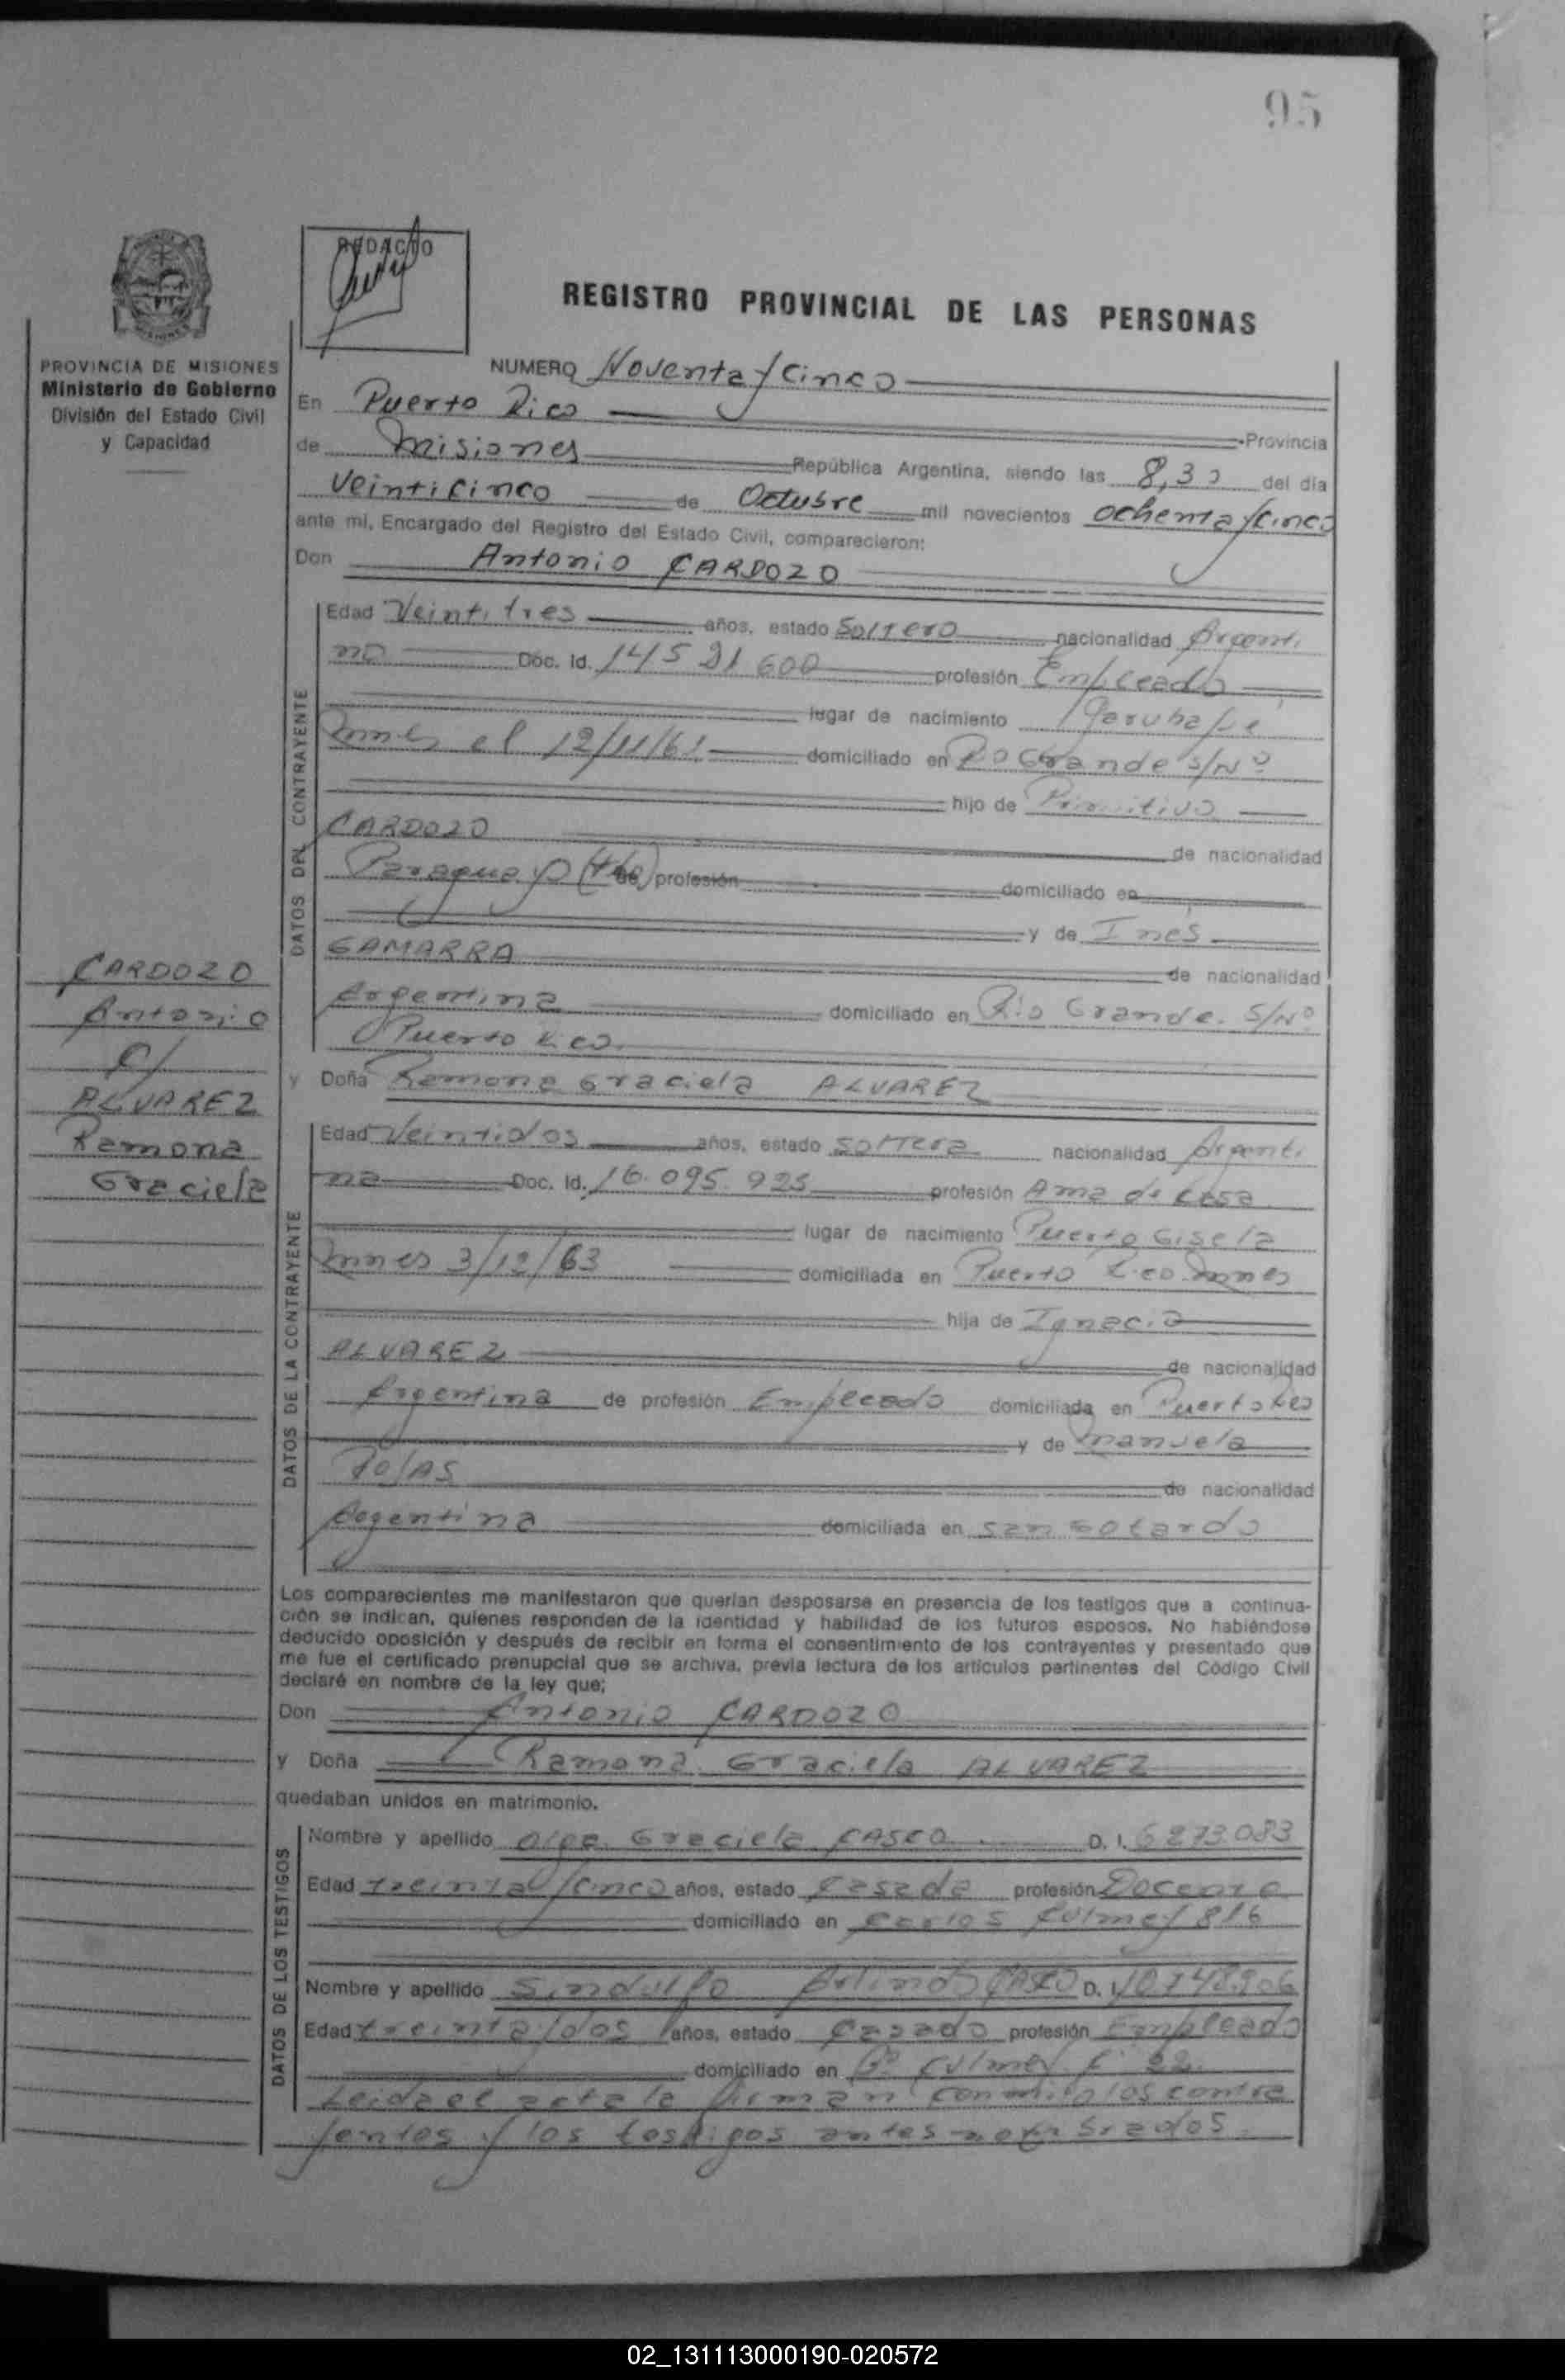 95
REDACTO
REGISTRO PROVINCIAL DE LAS PERSONAS
PROVINCIA DE MISIONES
Ministerio de Gobierno
División del Estado Civil
y Capacidad
NUMERO Noventa y cinco
En Puerto Rico Provincia
de Misiones República Argentina, siendo las 8,30 del día
Veinticinco de Octubre mil novecientos ochenta y cinco
ante mi, Encargado del Registro del Estado Civil, comparecieron:
Don Antonio CARDOZO
DATOS DEL CONTRAYENTE
Edad Veintitres años, estado Soltero nacionalidad Argenti
no Doc. Id. profesión Empleado
lugar de nacimiento Garuhape
el 12/11/61 domiciliado en Grande S/Nº
hijo de Primitivo
CARDOZO de nacionalidad
Paraguayo de profesión domiciliado en
y de Ines
GAMARRA de nacionalidad
Argentina domiciliado en Rio Grande. S/Nº
Puerto Rico.
y Doña Ramona Graciela ALVAREZ
CARDOZO
Antonio
C/
ALVAREZ
Ramona
Graciela
DATOS DE LA CONTRAYENTE
Edad Veintidos años, estado Soltera nacionalidad Argenti
na Doc. Id. 16.095.925 profesión Ama de Casa
lugar de nacimiento Puerto Gisela
3/12/63 domiciliada en Puerto Rico
hija de Ignacio
ALVAREZ de nacionalidad
Argentina de profesión Empleado domiciliada en Puerto Rico
y de Manuela
ROJAS de nacionalidad
Argentina domiciliada en San Gotardo
Los comparecientes me manifestaron que querían desposarse en presencia de los testigos que a continua-
ción se indican, quienes responden de la identidad y habilidad de los futuros esposos. No habiéndose
deducido oposición y después de recibir en forma el consentimiento de los contrayentes y presentado que
me fue el certificado prenupcial que se archiva, previa lectura de los artículos pertinentes del Código Civil
declaré en nombre de la ley que;
Don Antonio CARDOZO
y Doña Ramona Graciela ALVAREZ
quedaban unidos en matrimonio.
DATOS DE LOS TESTIGOS
Nombre y apellido Olga Graciela CASCO D. I. 6.273.083
Edad treinta y cinco años, estado Casada profesión Docente
domiciliado en Carlos Culmey 816
Nombre y apellido Sindulfo Arlindo CASCO D. I.
Edad treinta y dos años, estado Casado profesión Empleado
domiciliado en Bº Culmey 22
Leida el acta la firman conmigo los contra
yentes y los testigos antes nombrados.
02_131113000190-020572